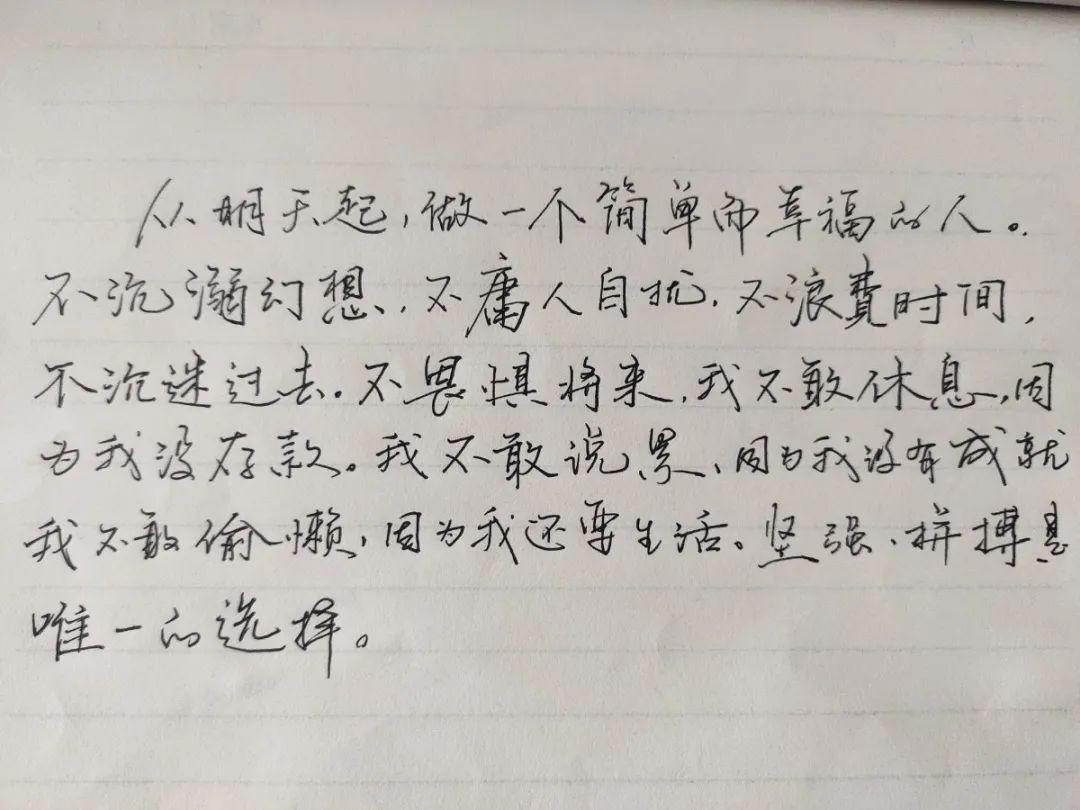 从明天起，做一个简单而幸福的人。
不沉溺幻想，不庸人自扰，不浪費时间，
不沉迷过去。不畏惧将来，我不敢休息，因
为我没存款。我不敢说累、因为我没有成就
我不敢偷懒，因为我还要生活。坚强、拼搏是
唯一的选择。